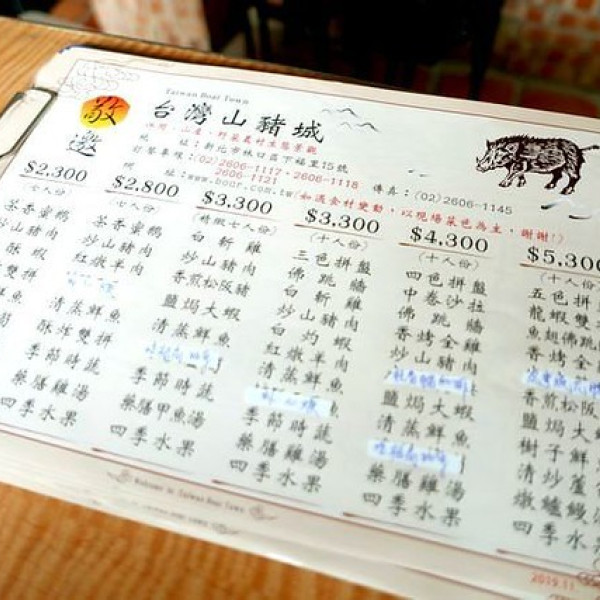 Taiwan Boar Town
敬邀
台灣山豬城
地 址:新北市林口區下福里15號
訂餐專線:(02)2606-1117・2606-1118
2606-1121
傳真:(02)2606-1145
網 址:www.boar.com.tw(如遇食材變動,以現場菜色為主,謝謝!)
$2,300
(七人份)
茶香蜜鵝
炒山豬肉
酥蝦
雙拼
季節時蔬
藥膳雞湯
四季水果
$2,800
(七人份)
茶香蜜鵝
炒山豬肉
紅燉羊肉
清蒸鮮魚
酥炸雙拼
季節時蔬
藥膳甲魚湯
四季水果
$3,300
(精緻七人份)
白斬雞
炒山豬肉
香煎松阪豬
鹽焗大蝦
清蒸鮮魚
季節時蔬
藥膳雞湯
四季水果
$3,300
(十人份)
三色拼盤
佛跳牆
白斬雞
炒山豬肉
白灼蝦
紅燉羊肉
清蒸鮮魚
季節時蔬
藥膳雞湯
四季水果
$4,300
(十人份)
四色拼盤
中卷沙拉
佛跳牆
香烤全雞
炒山豬肉
鹽焗大蝦
清蒸鮮魚
藥膳雞湯
四季水果
$5,300
(十人份)
五色拼
龍蝦雙
魚翅佛跳
香烤全
香煎松阪
鹽焗大
樹子鮮
清炒蘆
燉鱸鰻
四季水
Welcome to Taiwan Boar Town
2015.11